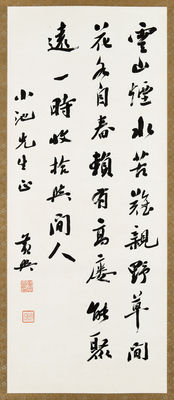 雲山煙水苦難親野草間
花各自春賴有高廔能聚
遠一時收拾與間人
小池先生正
黃興